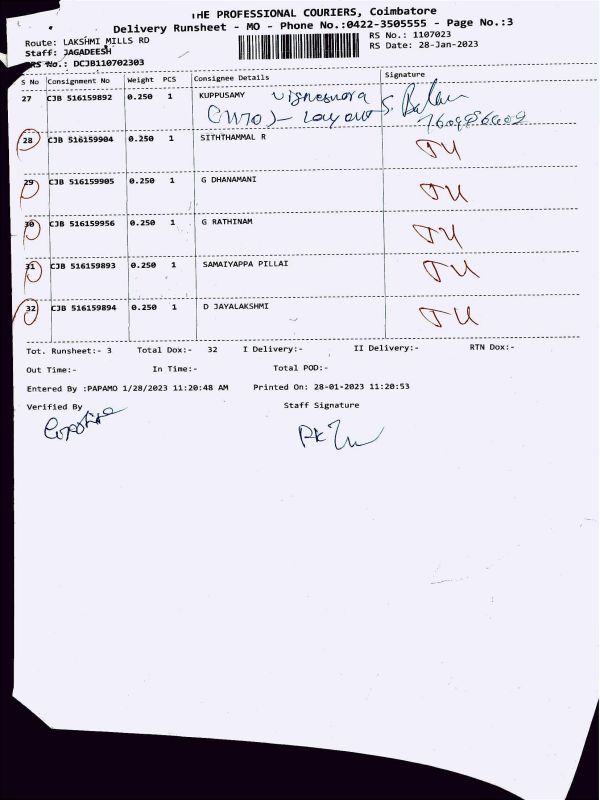 THE PROFESSIONAL COURIERS, Coimbatore
Delivery Runsheet - MO - Phone No.:0422-3505555 - Page No.:3
Route: LAKSHMI MILLS RD
RS No.: 1107023
Staff: JAGADEESH
RS Date: 28-Jan-2023
DRS No.: DCJB110702303
S No Consignment No Weight PCS Consignee Details Signature
27 CJB 516159892 0.250 1 KUPPUSAMY
28 CJB 516159904 0.250 1 SITHTHAMMAL R
29 CJB 516159905 0.250 1 G DHANAMANI
30 CJB 516159956 0.250 1 G RATHINAM
31 CJB 516159893 0.250 1 SAMAIYAPPA PILLAI
32 CJB 516159894 0.250 1 D JAYALAKSHMI
Tot. Runsheet:- 3 Total Dox:- 32 I Delivery:- II Delivery:- RTN Dox:-
Out Time:- In Time:- Total POD:-
Entered By :PAPAMO 1/28/2023 11:20:48 AM Printed On: 28-01-2023 11:20:53
Verified By Staff Signature